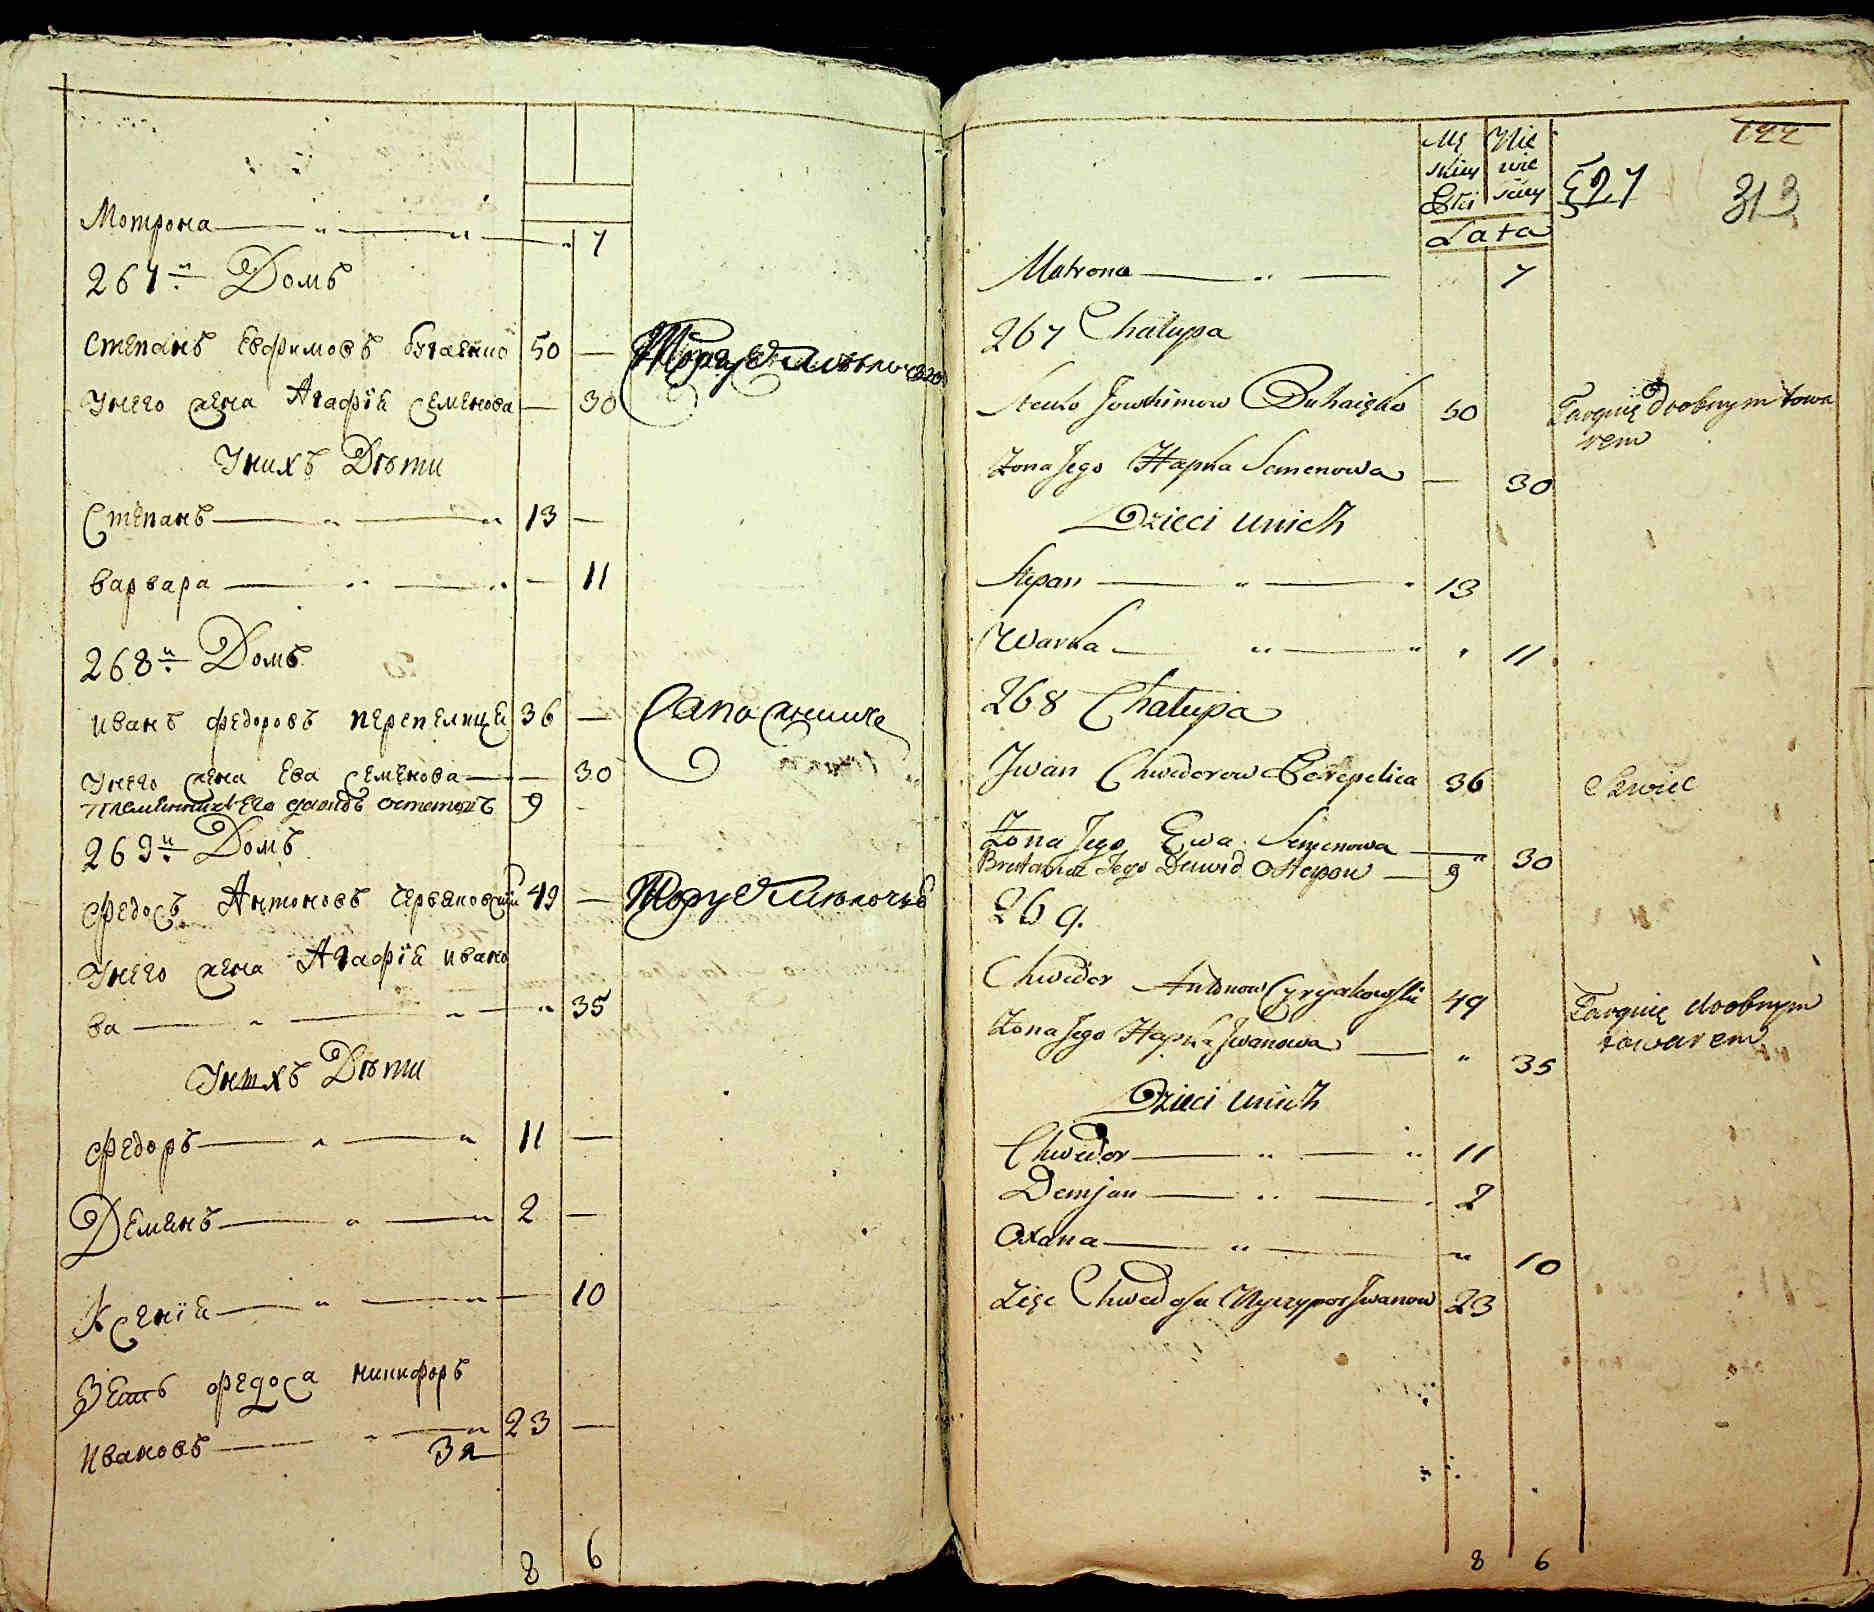 Мотрона 7
267й Домъ
Степанъ Евфимовъ Бугаенко 50 —
У него жена Агафiя Семенова — 30
У нихъ Дѣти
Степанъ 13 —
Варвара — 11
268й Домъ
Иванъ Федоровъ Перепелица 36 — Сапожникъ
У него жена Ева Семенова — 30
Племянникъ его Давидъ Остаповъ 9 -
269й Домъ
Федосъ Антоновъ 49 —
У него жена Агафiя Ивано
ва 35
У нихъ Дѣти
Федоръ 11 —
Демянъ 2 —
Ксенiя — 10
Зять Федоса Никифоръ
Ивановъ 23 —
8 6
Mę Nie
skiey wie
Płci sciey
Lata
§27
122
313
Matrona 7
267 Chałupa
Jowchimow Buhaięko 50 Targuię drobnym towa
rem
Zona Jego Hapka Semenowa — 30
Dzieci u nich
Stepan 13
Warka 11
268 Chałupa
Jwan Chwedorow Perepelica 36 Szwiec
Zona Jego Ewa Semenowa 30
Jego Dawid Ostapow 9
269.
Chwedor Antonow 49 Targuię drobnym
towarem
Zona Jego Hapka Jwanowa 35
Dzieci u nich
Chwedor 11
Demjan 2
Oxana 10
Zięc Chwedosa Jwanow 23
8 6